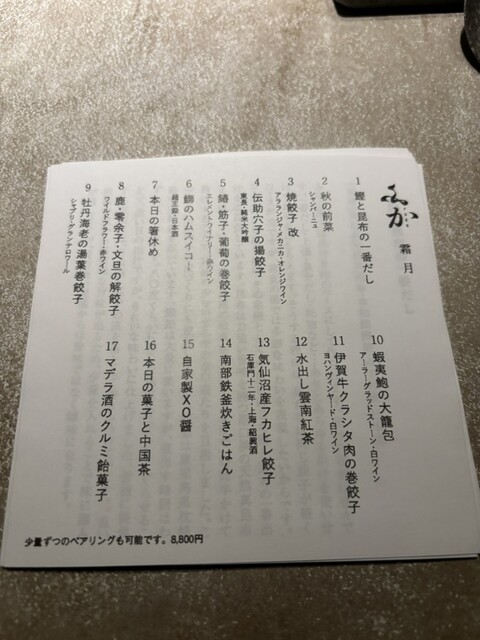 ふか
霜月
1 鰹と昆布の一番だし
2 秋の前菜
シャンパーニュ
3 焼餃子 改
アラランジャ・メカニカ・オレンジワイン
4 伝助穴子の揚餃子
東長・純米大吟醸
5 鰆・筋子・葡萄の巻餃子
エレメントワイナリー・赤ワイン
6 鰤のハムスイコー
蔵王駒・日本酒
7 本日の箸休め
8 鹿・零余子・文旦の解餃子
ワイルドフラワー・赤ワイン
9 牡丹海老の湯葉巻餃子
シャブリ・グランテロワール
10 蝦夷鮑の大籠包
アーラー・グラッドストーン・白ワイン
11 伊賀牛クラシタ肉の巻餃子
ヨハンヴィンヤード・白ワイン
12 水出し雲南紅茶
13 気仙沼産フカヒレ餃子
石庫門十二年・上海・紹興酒
14 南部鉄釜炊きごはん
15 自家製XO醤
16 本日の菓子と中国茶
17 マデラ酒のクルミ飴菓子
少量ずつのペアリングも可能です。8,800円